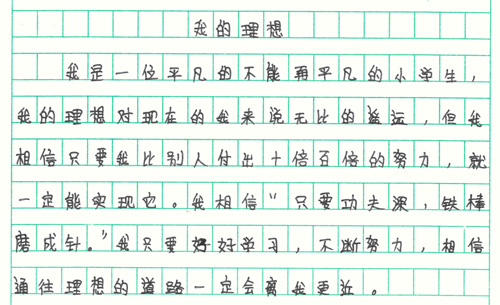 我的理想
我是一位平凡的不能再平凡的小学生，
我的理想对现在的我来说无比的遥远，但我
相信只要我比别人付出十倍百倍的努力，就
一定能实现它。我相信“只要功夫深，铁棒
磨成针。”我只要好好学习，不断努力，相信
通往理想的道路一定会离我更近。